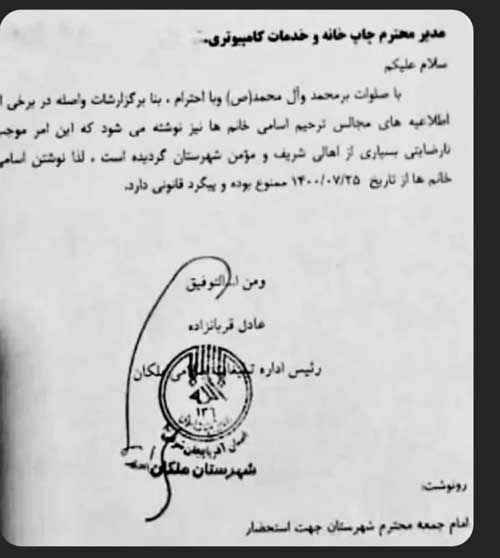 مدیر محترم چاپ خانه و خدمات کامپیوتری..
سلام علیکم
با صلوات برمحمد وآل محمد(ص) وبا احترام ، بنا برگزارشات واصله در برخی
اطلاعیه های مجالس ترحیم اسامی خانم ها نیز نوشته می شود که این امر موجب
نارضایتی بسیاری از اهالی شریف و مؤمن شهرستان گردیده است ، لذا نوشتن اسامی
خانم ها از تاریخ ۱۴۰۰/۰۷/۲۵ ممنوع بوده و پیگرد قانونی دارد.
ومن الله التوفیق
عادل قربانزاده
رئیس اداره تبلیغات اسلامی ملکان
۱۳۶
استان آذربایجان شرقی
شهرستان ملکان
رونوشت:
امام جمعه محترم شهرستان جهت استحضار